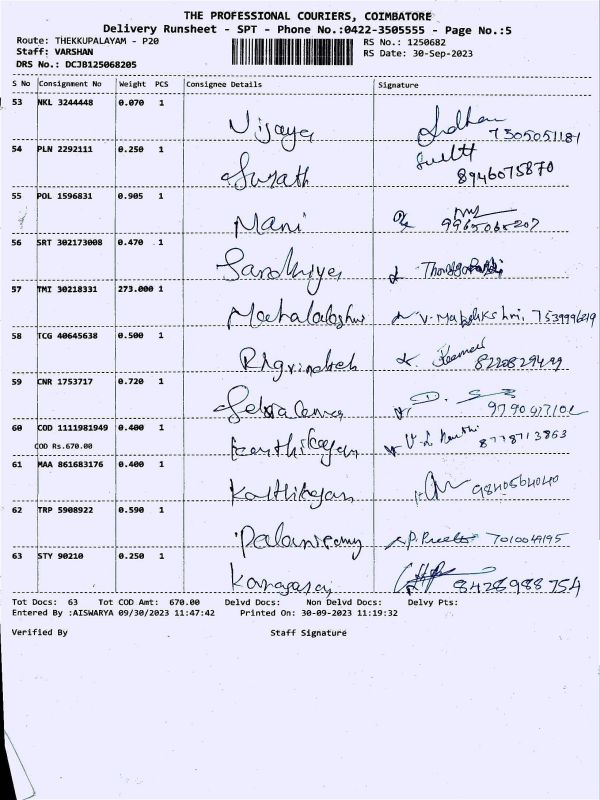 THE PROFESSIONAL COURIERS, COIMBATORE
Delivery Runsheet - SPT - Phone No.:0422-3505555 - Page No.:5
Route: THEKKUPALAYAM - P20 RS No.: 1250682
Staff: VARSHAN RS Date: 30-Sep-2023
DRS No.: DCJB125068205
S No Consignment No Weight PCS Consignee Details Signature
53 NKL 3244448 0.070 1
Vijaya 7305051181
54 PLN 2292111 0.250 1
8946075870
55 POL 1596831 0.905 1
Mani 9965065207
56 SRT 302173008 0.470 1
Sandhiya
57 TMI 30218331 273.000 1
58 TCG 40645638 0.500 1
59 CNR 1753717 0.720 1
60 COD 1111981949 0.400 1
COD Rs.670.00 8778713863
61 MAA 861683176 0.400 1
Karthikeyan
62 TRP 5908922 0.590 1
Palanisamy
63 STY 90210 0.250 1
Kanagaraj 8428988754
Tot Docs: 63 Tot COD Amt: 670.00 Delvd Docs: Non Delvd Docs: Delvy Pts:
Entered By :AISWARYA 09/30/2023 11:47:42 Printed On: 30-09-2023 11:19:32
Verified By Staff Signature